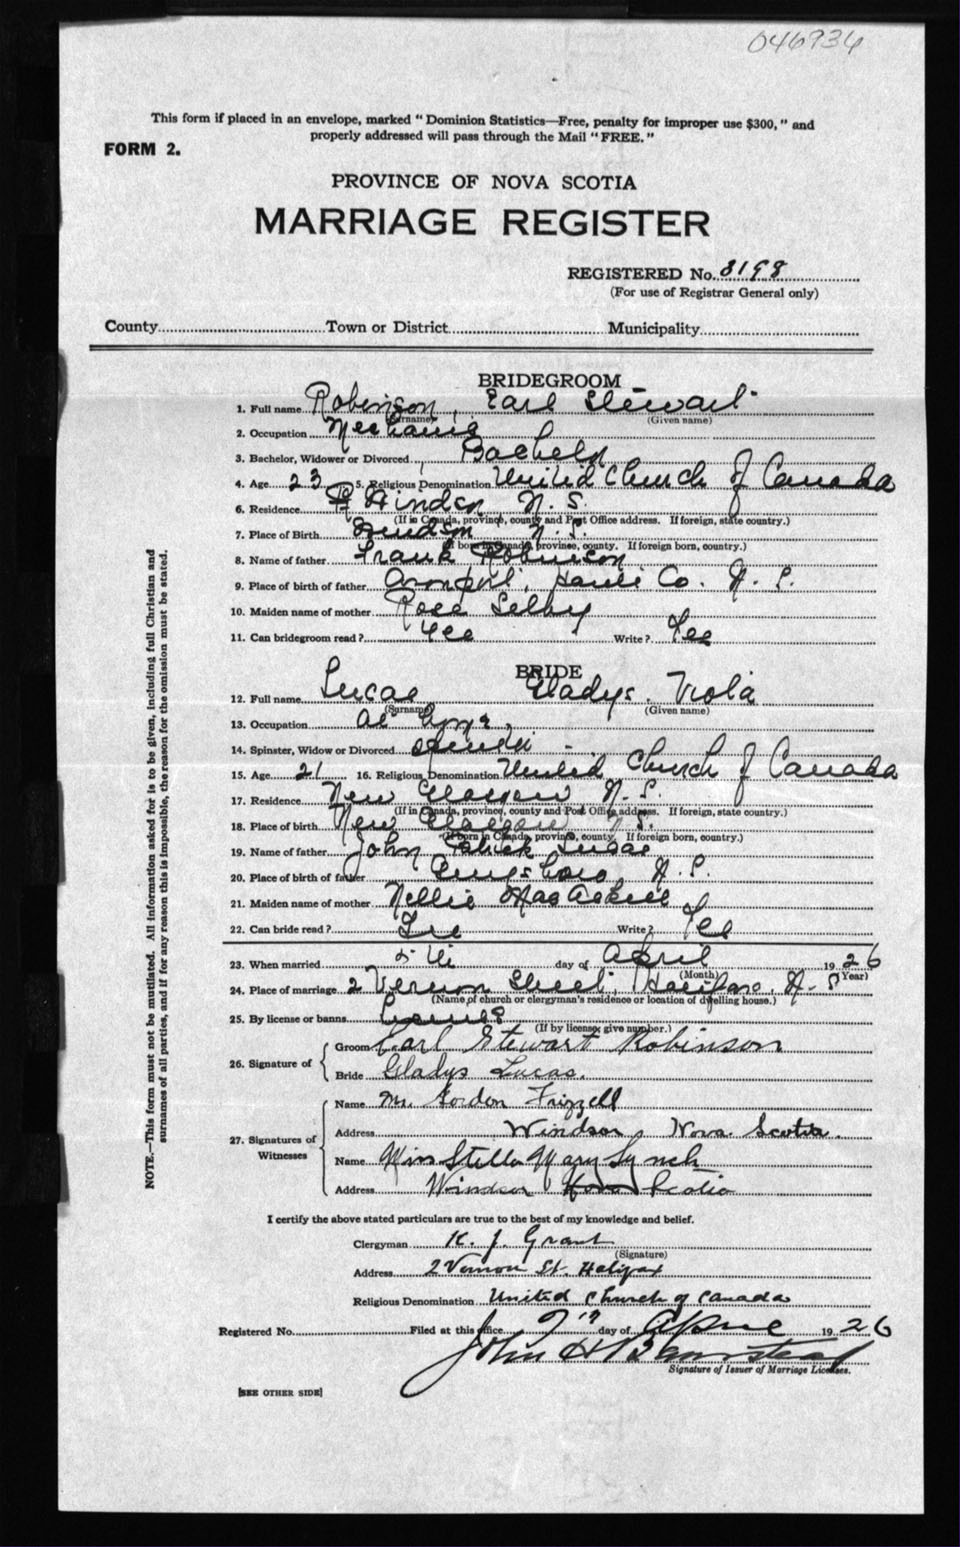 046934
This form if placed in an envelope, marked "Dominion Statistics—Free, penalty for improper use $300," and
properly addressed will pass through the Mail "FREE."
FORM 2.
PROVINCE OF NOVA SCOTIA
MARRIAGE REGISTER
REGISTERED No. 3198
(For use of Registrar General only)
County Town or District Municipality
BRIDEGROOM
1. Full name Robinson, Earl Stewart
(Surname) (Given name)
2. Occupation Mechanic
3. Bachelor, Widower or Divorced Bachelor
4. Age 23 5. Religious Denomination United Church of Canada
6. Residence Windsor N. S.
(If in Canada, province, county and Post Office address. If foreign, state country.)
7. Place of Birth Windsor N. S.
(If born in Canada, province, county. If foreign born, country.)
8. Name of father Frank Robinson
9. Place of birth of father Hants Co. N. S.
10. Maiden name of mother Rose Selby
11. Can bridegroom read? Yes Write? Yes
BRIDE
12. Full name Lucas Gladys Viola
(Surname) (Given name)
13. Occupation At Home
14. Spinster, Widow or Divorced Spinster
15. Age 21 16. Religious Denomination United Church of Canada
17. Residence New Glasgow N. S.
(If in Canada, province, county and Post Office address. If foreign, state country.)
18. Place of birth New Glasgow N. S.
(If born in Canada, province, county. If foreign born, country.)
19. Name of father John Patrick Lucas
20. Place of birth of father N. S.
21. Maiden name of mother Nellie MacAskill
22. Can bride read? Yes Write? Yes
23. When married day of April 1926
(Month) (Year)
24. Place of marriage 2 Vernon Street, Halifax, N. S.
(Name of church or clergyman's residence or location of dwelling house.)
25. By license or banns License
(If by license, give number.)
26. Signature of
Groom Earl Stewart Robinson
Bride Gladys Lucas.
27. Signatures of Witnesses
Name Mr. Gordon Frizzell
Address Windsor, Nova Scotia.
Name Miss Stella Mary Lynch
Address Windsor Nova Scotia
I certify the above stated particulars are true to the best of my knowledge and belief.
Clergyman K. J. Grant
(Signature)
Address 2 Vernon St. Halifax
Religious Denomination United Church of Canada
Registered No. Filed at this office day of April 1926
John H Barnstead
Signature of Issuer of Marriage Licenses.
[SEE OTHER SIDE]
NOTE.—This form must not be mutilated. All information asked for is to be given, including full Christian and
surnames of all parties, and if for any reason this is impossible, the reason for the omission must be stated.